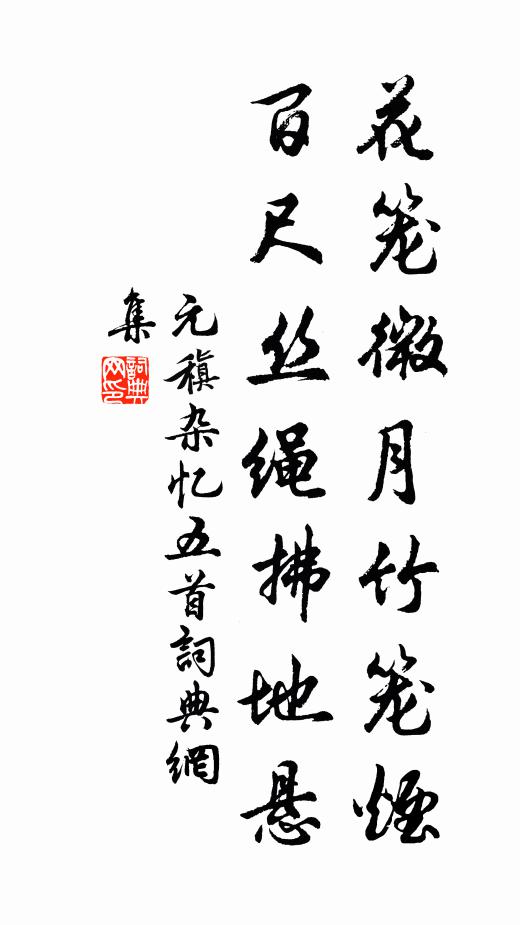 花笼微月竹笼烟
百尺丝绳拂地悬
元稹杂忆五首詞典網
集
詞典网印